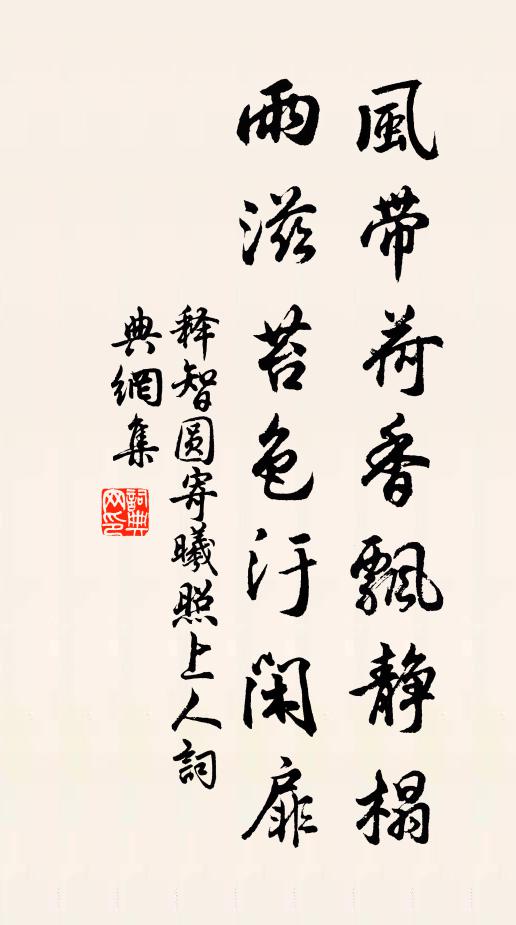 風帶荷香飄静榻
雨滋苔色汙闲扉
释智圆寄曦照上人詞
典網集
詞典网印